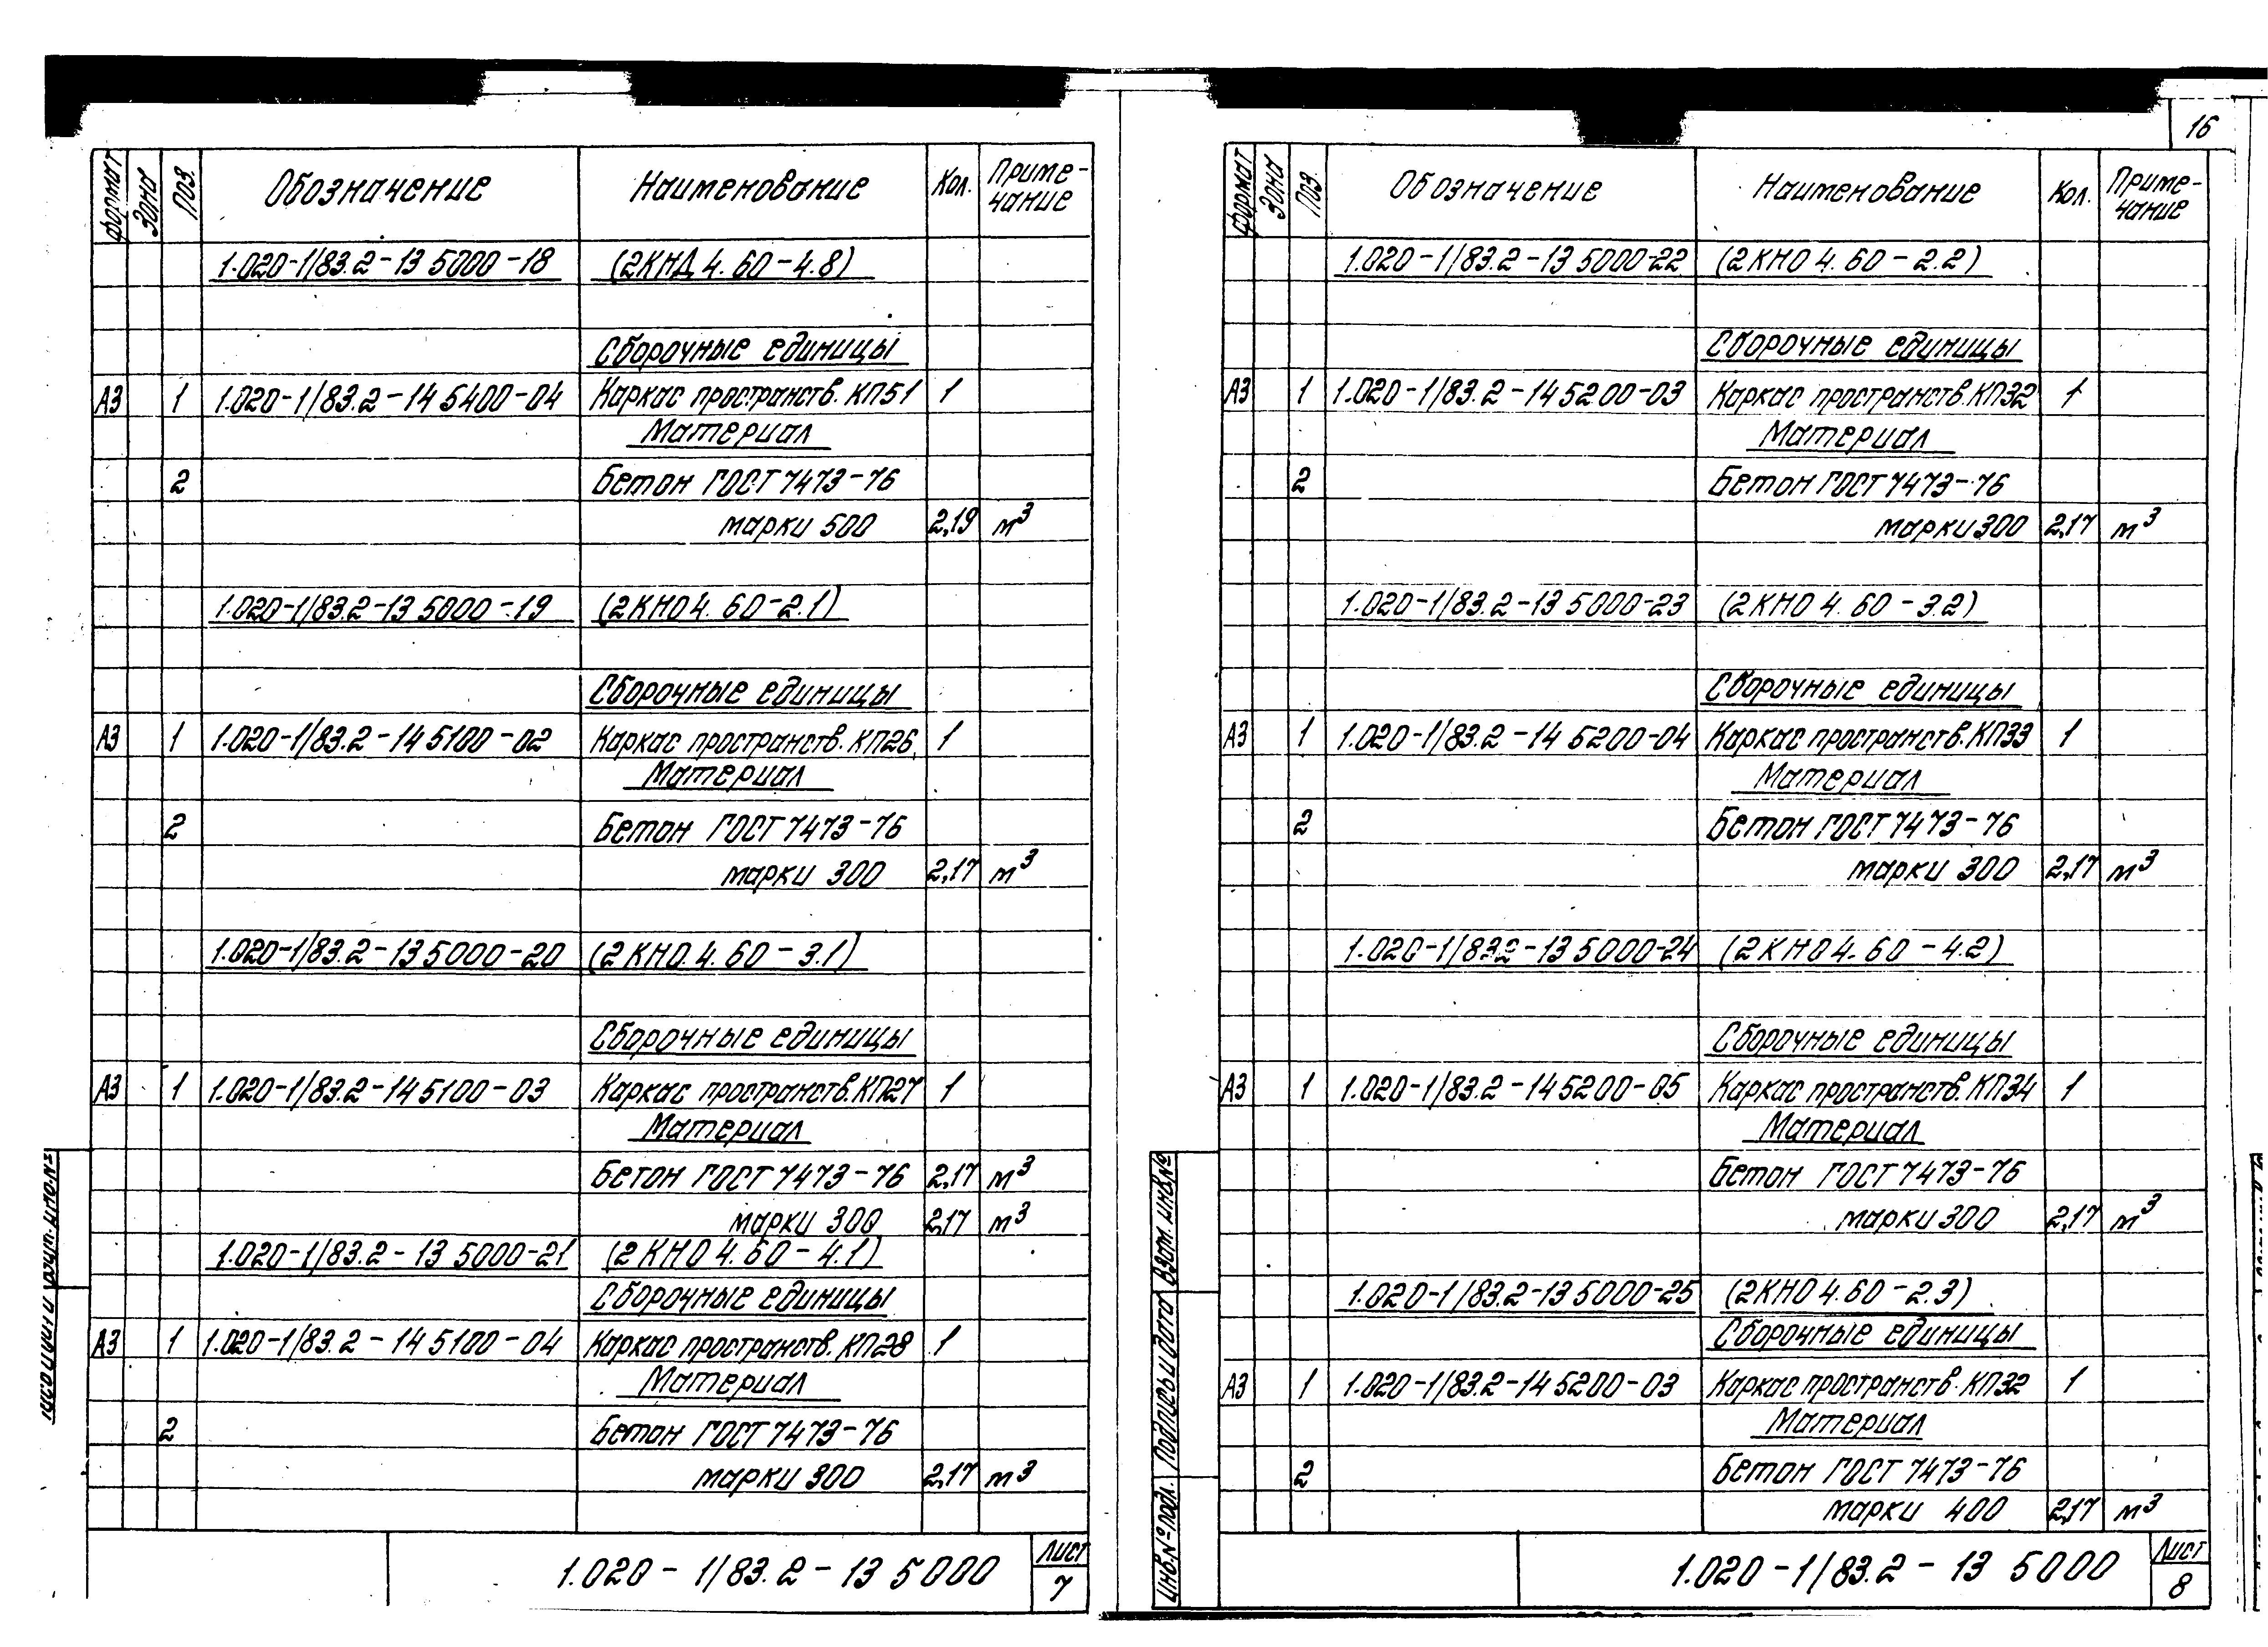 формат Зона Поз. Обозначение Наименование Кол. Приме-
чание
1.020-1/83.2-13 5000-18 (2КНД 4.60-4.8)
Сборочные единицы
А3 1 1.020-1/83.2-14 5400-04 Каркас пространств. КП51 1
Материал
2 Бетон ГОСТ 7473-76
марки 500 2,19 м³
1.020-1/83.2-13 5000-19 (2КНО 4.60-2.1)
Сборочные единицы
А3 1 1.020-1/83.2-14 5100-02 Каркас пространств. КП26 1
Материал
2 Бетон ГОСТ 7473-76
марки 300 2,17 м³
1.020-1/83.2-13 5000-20 (2КНО 4.60-3.1)
Сборочные единицы
А3 1 1.020-1/83.2-14 5100-03 Каркас пространств. КП27 1
Материал
Бетон ГОСТ 7473-76 2,17 м³
марки 300 2,17 м³
1.020-1/83.2-13 5000-21 (2КНО 4.60-4.1)
Сборочные единицы
А3 1 1.020-1/83.2-14 5100-04 Каркас пространств. КП28 1
Материал
2 Бетон ГОСТ 7473-76
марки 300 2,17 м³
1.020-1/83.2-13 5000 Лист
7
16
формат Зона Поз. Обозначение Наименование Кол. Приме-
чание
1.020-1/83.2-13 5000-22 (2КНО 4.60-2.2)
Сборочные единицы
А3 1 1.020-1/83.2-14 5200-03 Каркас пространств. КП32 1
Материал
2 Бетон ГОСТ 7473-76
марки 300 2,17 м³
1.020-1/83.2-13 5000-23 (2КНО 4.60-3.2)
Сборочные единицы
А3 1 1.020-1/83.2-14 5200-04 Каркас пространств. КП33 1
Материал
2 Бетон ГОСТ 7473-76
марки 300 2,17 м³
1.020-1/83.2-13 5000-24 (2КНО 4.60-4.2)
Сборочные единицы
А3 1 1.020-1/83.2-14 5200-05 Каркас пространств. КП34 1
Материал
Бетон ГОСТ 7473-76
марки 300 2,17 м³
1.020-1/83.2-13 5000-25 (2КНО 4.60-2.3)
Сборочные единицы
А3 1 1.020-1/83.2-14 5200-03 Каркас пространств. КП32 1
Материал
2 Бетон ГОСТ 7473-76
марки 400 2,17 м³
Инв.№ подл. Подпись и дата Взам. инв.№
1.020-1/83.2-13 5000 Лист
8